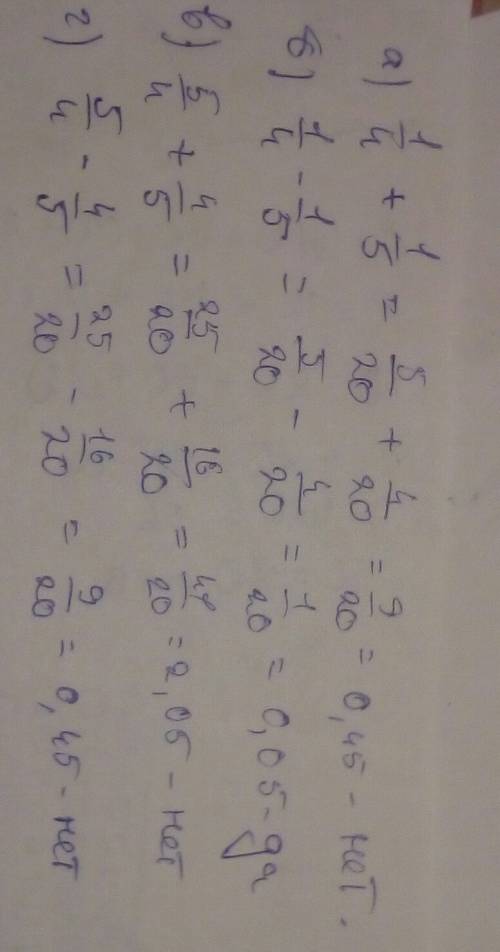 а) 1/4 + 1/5 = 5/20 + 4/20 = 9/20 = 0,45 - нет.
б) 1/4 - 1/5 = 5/20 - 4/20 = 1/20 = 0,05 - да
в) 5/4 + 4/5 = 25/20 + 16/20 = 41/20 = 2,05 - нет
г) 5/4 - 4/5 = 25/20 - 16/20 = 9/20 = 0,45 - нет